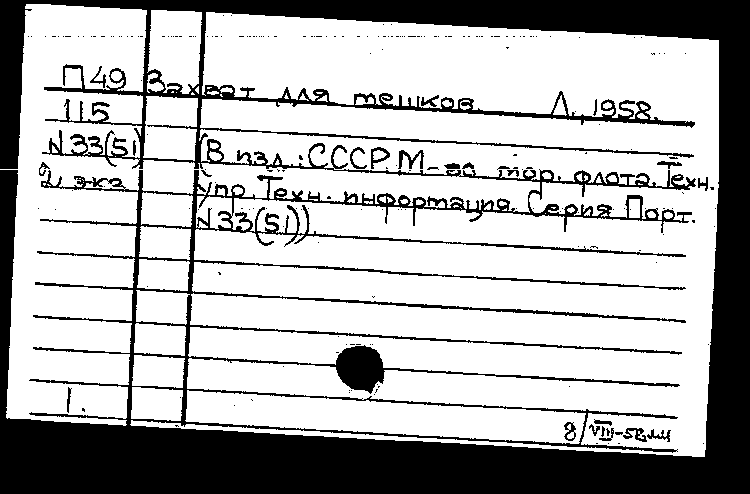 П49 Захват для мешков. Л., 1958.
115
N33(51) (В изд.: СССР. М-во мор. флота. Техн.
2 экз упр. Техн. информация. Серия Порт.
N33(51)).
1.
8/VIII-58